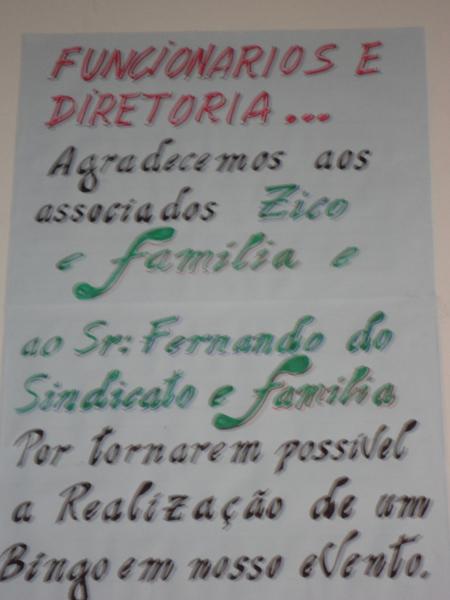 FUNCIONARIOS E
DIRETORIA...
Agradecemos aos
associados Zico
e família e
ao Sr: Fernando do
Sindicato e família
Por tornarem possível
a Realização de um
Bingo em nosso eVento.